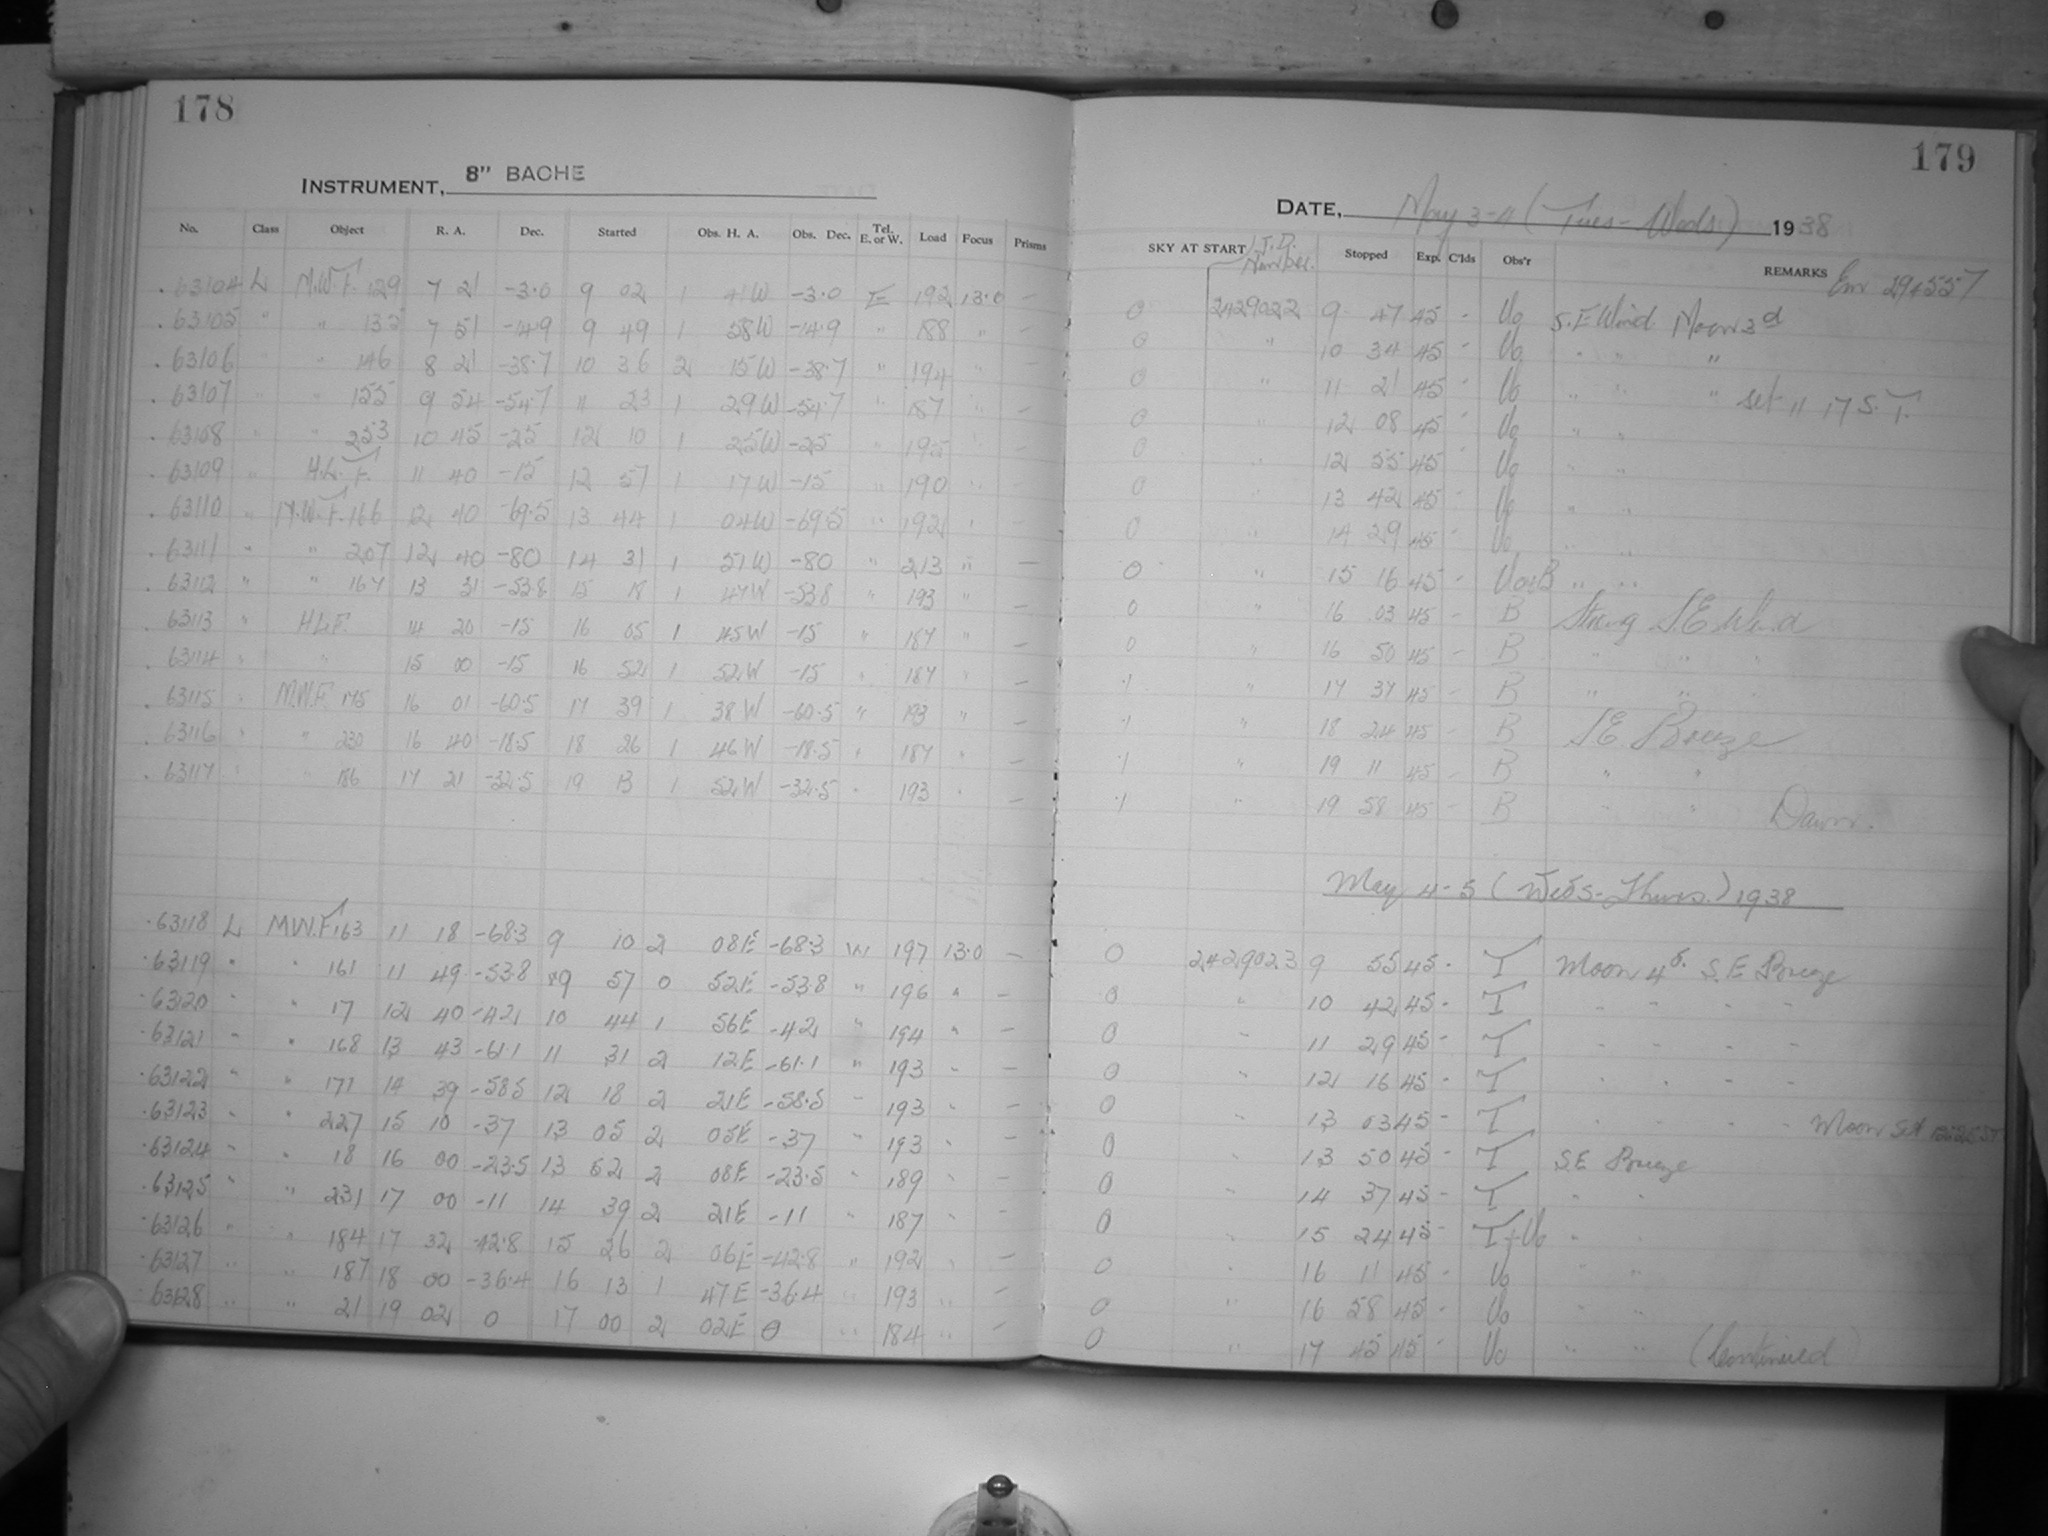 178
INSTRUMENT, 8" BACHE
No. Class Object R. A. Dec. Started Obs. H. A. Obs. Dec. Tel. E. or W. Load Focus Prisms
63104 L M.W.F. 129 7 21 -3.0 9 02 1 41W -3.0 E 192 13.0 -
63105 " " 135 7 51 -14.9 9 49 1 58W -14.9 " 188 " -
63106 " " 146 8 21 -38.7 10 36 2 15W -38.7 " 194 " -
63107 " " 155 9 54 -54.7 11 23 1 29W -54.7 " 187 " -
63108 " " 253 10 45 -25 12 10 1 25W -25 " 195 " -
63109 " H.L.F. 11 40 -15 12 57 1 17W -15 " 190 " -
63110 " M.W.F. 166 12 40 -69.5 13 44 1 04W -69.5 " 192 " -
63111 " " 207 12 40 -80 14 31 1 51W -80 " 213 " -
63112 " " 167 13 31 -53.8 15 18 1 47W -53.8 " 193 " -
63113 " H.L.F. 14 20 -15 16 05 1 45W -15 " 187 " -
63114 " " 15 00 -15 16 52 1 52W -15 " 187 " -
63115 " M.W.F. 175 16 01 -60.5 17 39 1 38W -60.5 " 193 " -
63116 " " 230 16 40 -18.5 18 26 1 46W -18.5 " 187 " -
63117 " " 186 17 21 -32.5 19 13 1 52W -32.5 " 193 " -
63118 L M.W.F. 163 11 18 -68.3 9 10 2 08E -68.3 W 197 13.0 -
63119 " " 161 11 49 -53.8 9 57 0 52E -53.8 " 196 " -
63120 " " 17 12 40 -42 10 44 1 56E -42 " 194 " -
63121 " " 168 13 43 -61.1 11 31 2 12E -61.1 " 193 " -
63122 " " 171 14 39 -58.5 12 18 2 21E -58.5 " 193 " -
63123 " " 227 15 10 -37 13 05 2 05E -37 " 193 " -
63124 " " 18 16 00 -23.5 13 52 2 08E -23.5 " 189 " -
63125 " " 231 17 00 -11 14 39 2 21E -11 " 187 " -
63126 " " 184 17 32 -42.8 15 26 2 06E -42.8 " 192 " -
63127 " " 187 18 00 -36.4 16 13 1 47E -36.4 " 193 " -
63128 " " 21 19 02 0 17 00 2 02E 0 " 184 " -
179
DATE, May 3-4 (Tues - Weds) 1938
SKY AT START J.D. Number. Stopped Exp. C'lds Obs'r REMARKS Em 294557
0 2429022 9 47 45 - Uo S.E Wind Moon 3d
0 " 10 34 45 - Uo " " "
0 " 11 21 45 - Uo " " " set 11 17 S.T.
0 " 12 08 45 - Uo " "
0 " 12 55 45 - Uo " "
0 " 13 42 45 - Uo " "
0 " 14 29 45 - Uo " "
0 " 15 16 45 - Uo+B " "
0 " 16 03 45 - B Strong S.E. Wind
0 " 16 50 45 - B " " "
.1 " 17 37 45 - B " " "
.1 " 18 24 45 - B S.E. Breeze
.1 " 19 11 45 - B " "
.1 " 19 58 45 - B " " Dawn.
May 4-5 (Weds-Thurs.) 1938
0 2429023 9 55 45 - T Moon 4d. S.E Breeze
0 " 10 42 45 - T " " " "
0 " 11 29 45 - T " " " "
0 " 12 16 45 - T " " " "
0 " 13 03 45 - T " " " " Moon Set
0 " 13 50 45 - T S.E Breeze
0 " 14 37 45 - T " "
0 " 15 24 45 - T+Uo " "
0 " 16 11 45 - Uo " "
0 " 16 58 45 - Uo " "
0 " 17 45 45 - Uo " " (Continued)